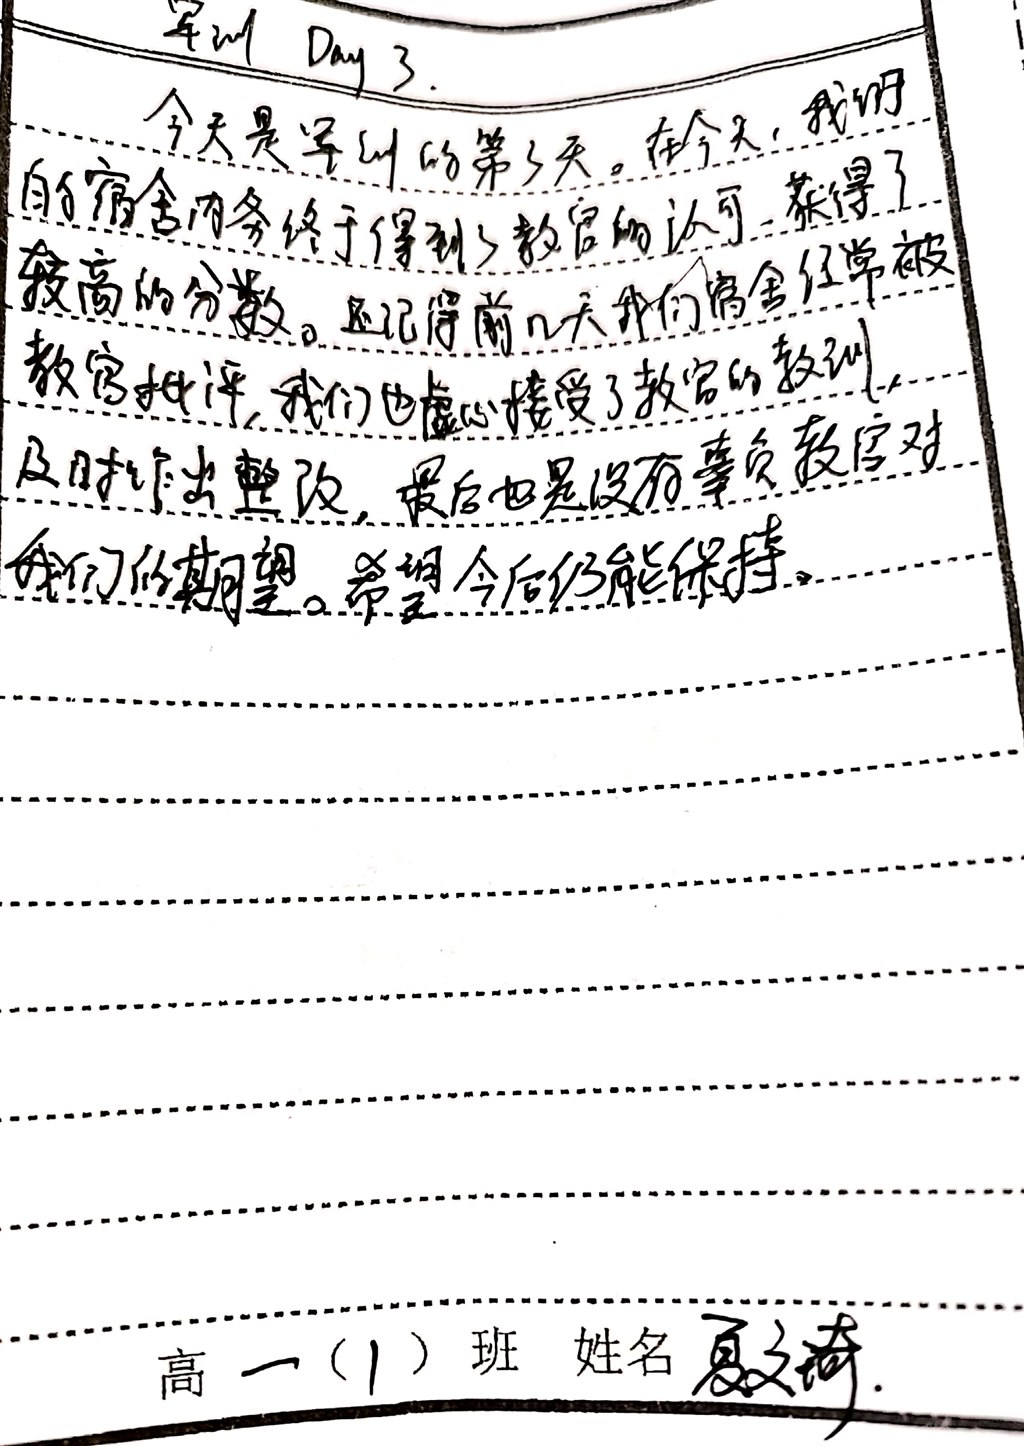 军训 Day 3.
今天是军训的第3天。在今天，我们
的宿舍内务终于得到了教官的认可，获得了
较高的分数。还记得前几天我们宿舍经常被
教官批评，我们也虚心接受了教官的教训，
及时作出整改，最后也是没有辜负教官对
我们的期望。希望今后仍能保持。
高一（1）班 姓名 夏文琦.